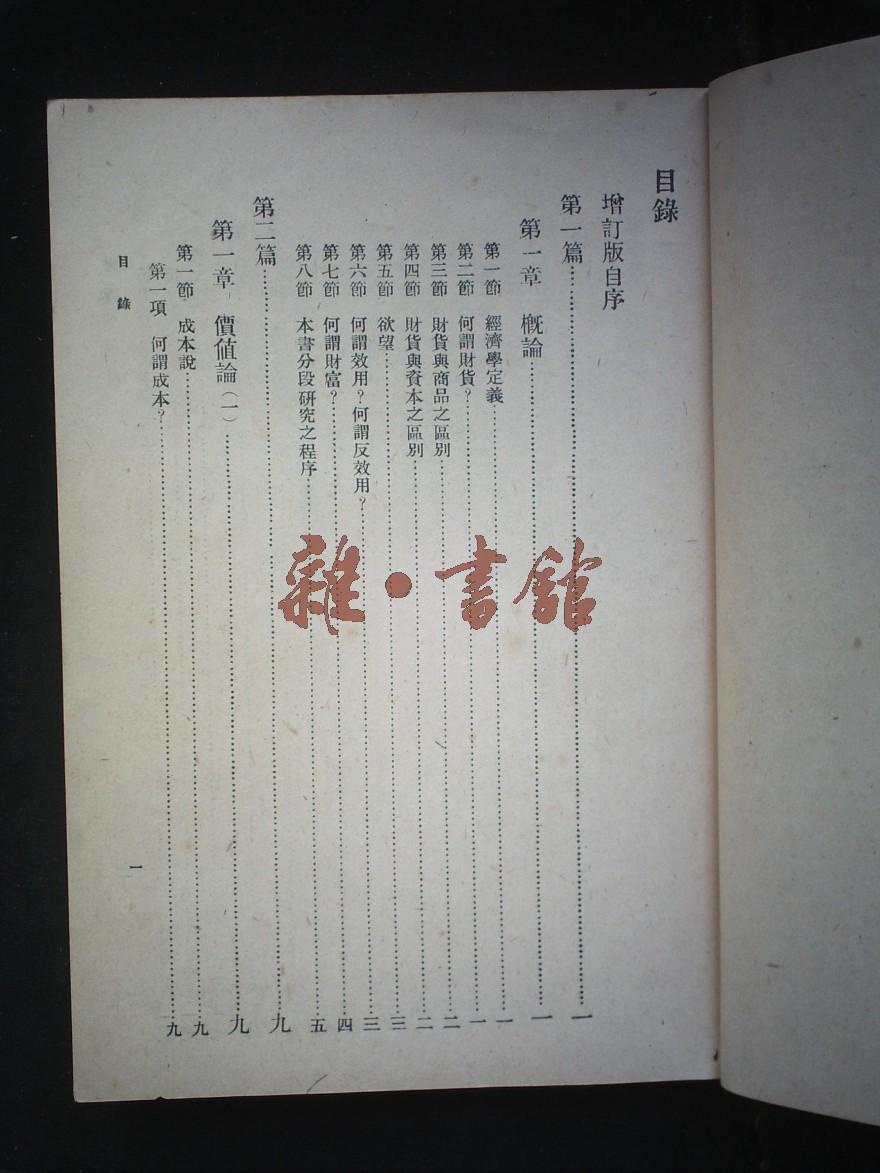 目錄
增訂版自序
第一篇……一
第一章　概論……一
第一節　經濟學定義……一
第二節　何謂財貨？……一
第三節　財貨與商品之區別……二
第四節　財貨與資本之區別……二
第五節　欲望……三
第六節　何謂效用？何謂反效用？……三
第七節　何謂財富？……四
第八節　本書分段研究之程序……五
第二篇……九
第一章　價值論（一）……九
第一節　成本說……九
第一項　何謂成本？……九
目錄　一
雜·書館